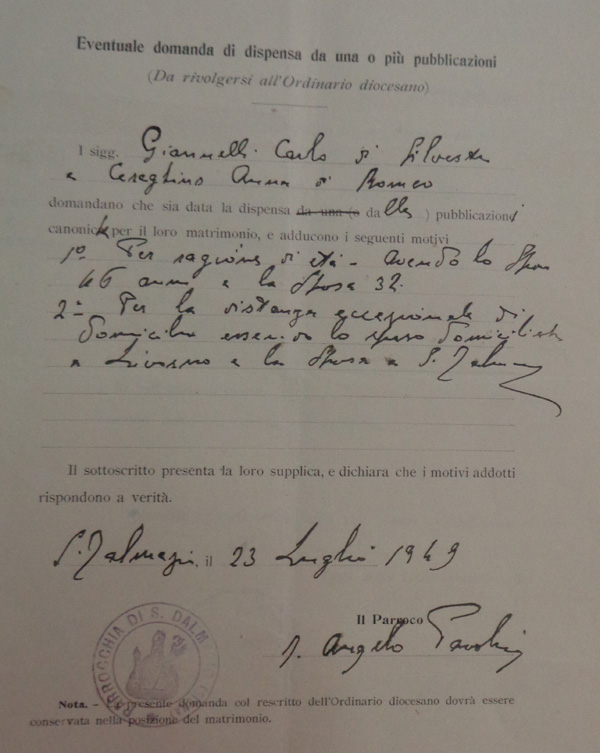 Eventuale domanda di dispensa da una o più pubblicazioni
(Da rivolgersi all'Ordinario diocesano)
I sigg. Giannelli Carlo di Silvestro
e Cereghino Anna di Romeo
domandano che sia data la dispensa da una (o dalle ) pubblicazioni
canoniche per il loro matrimonio, e adducono i seguenti motivi
1° Per ragione di età - avendo lo Sposo
46 anni e la Sposa 32.
2° Per la distanza eccezionale di
domicilio essendo lo sposo domiciliato
a Livorno e la Sposa a S. Dalmazio
Il sottoscritto presenta la loro supplica, e dichiara che i motivi addotti
rispondono a verità.
S. Dalmazio, il 23 Luglio 1949
Il Parroco
Angelo
PARROCCHIA DI S. DALM
Nota. - La presente domanda col rescritto dell'Ordinario diocesano dovrà essere
conservata nella posizione del matrimonio.